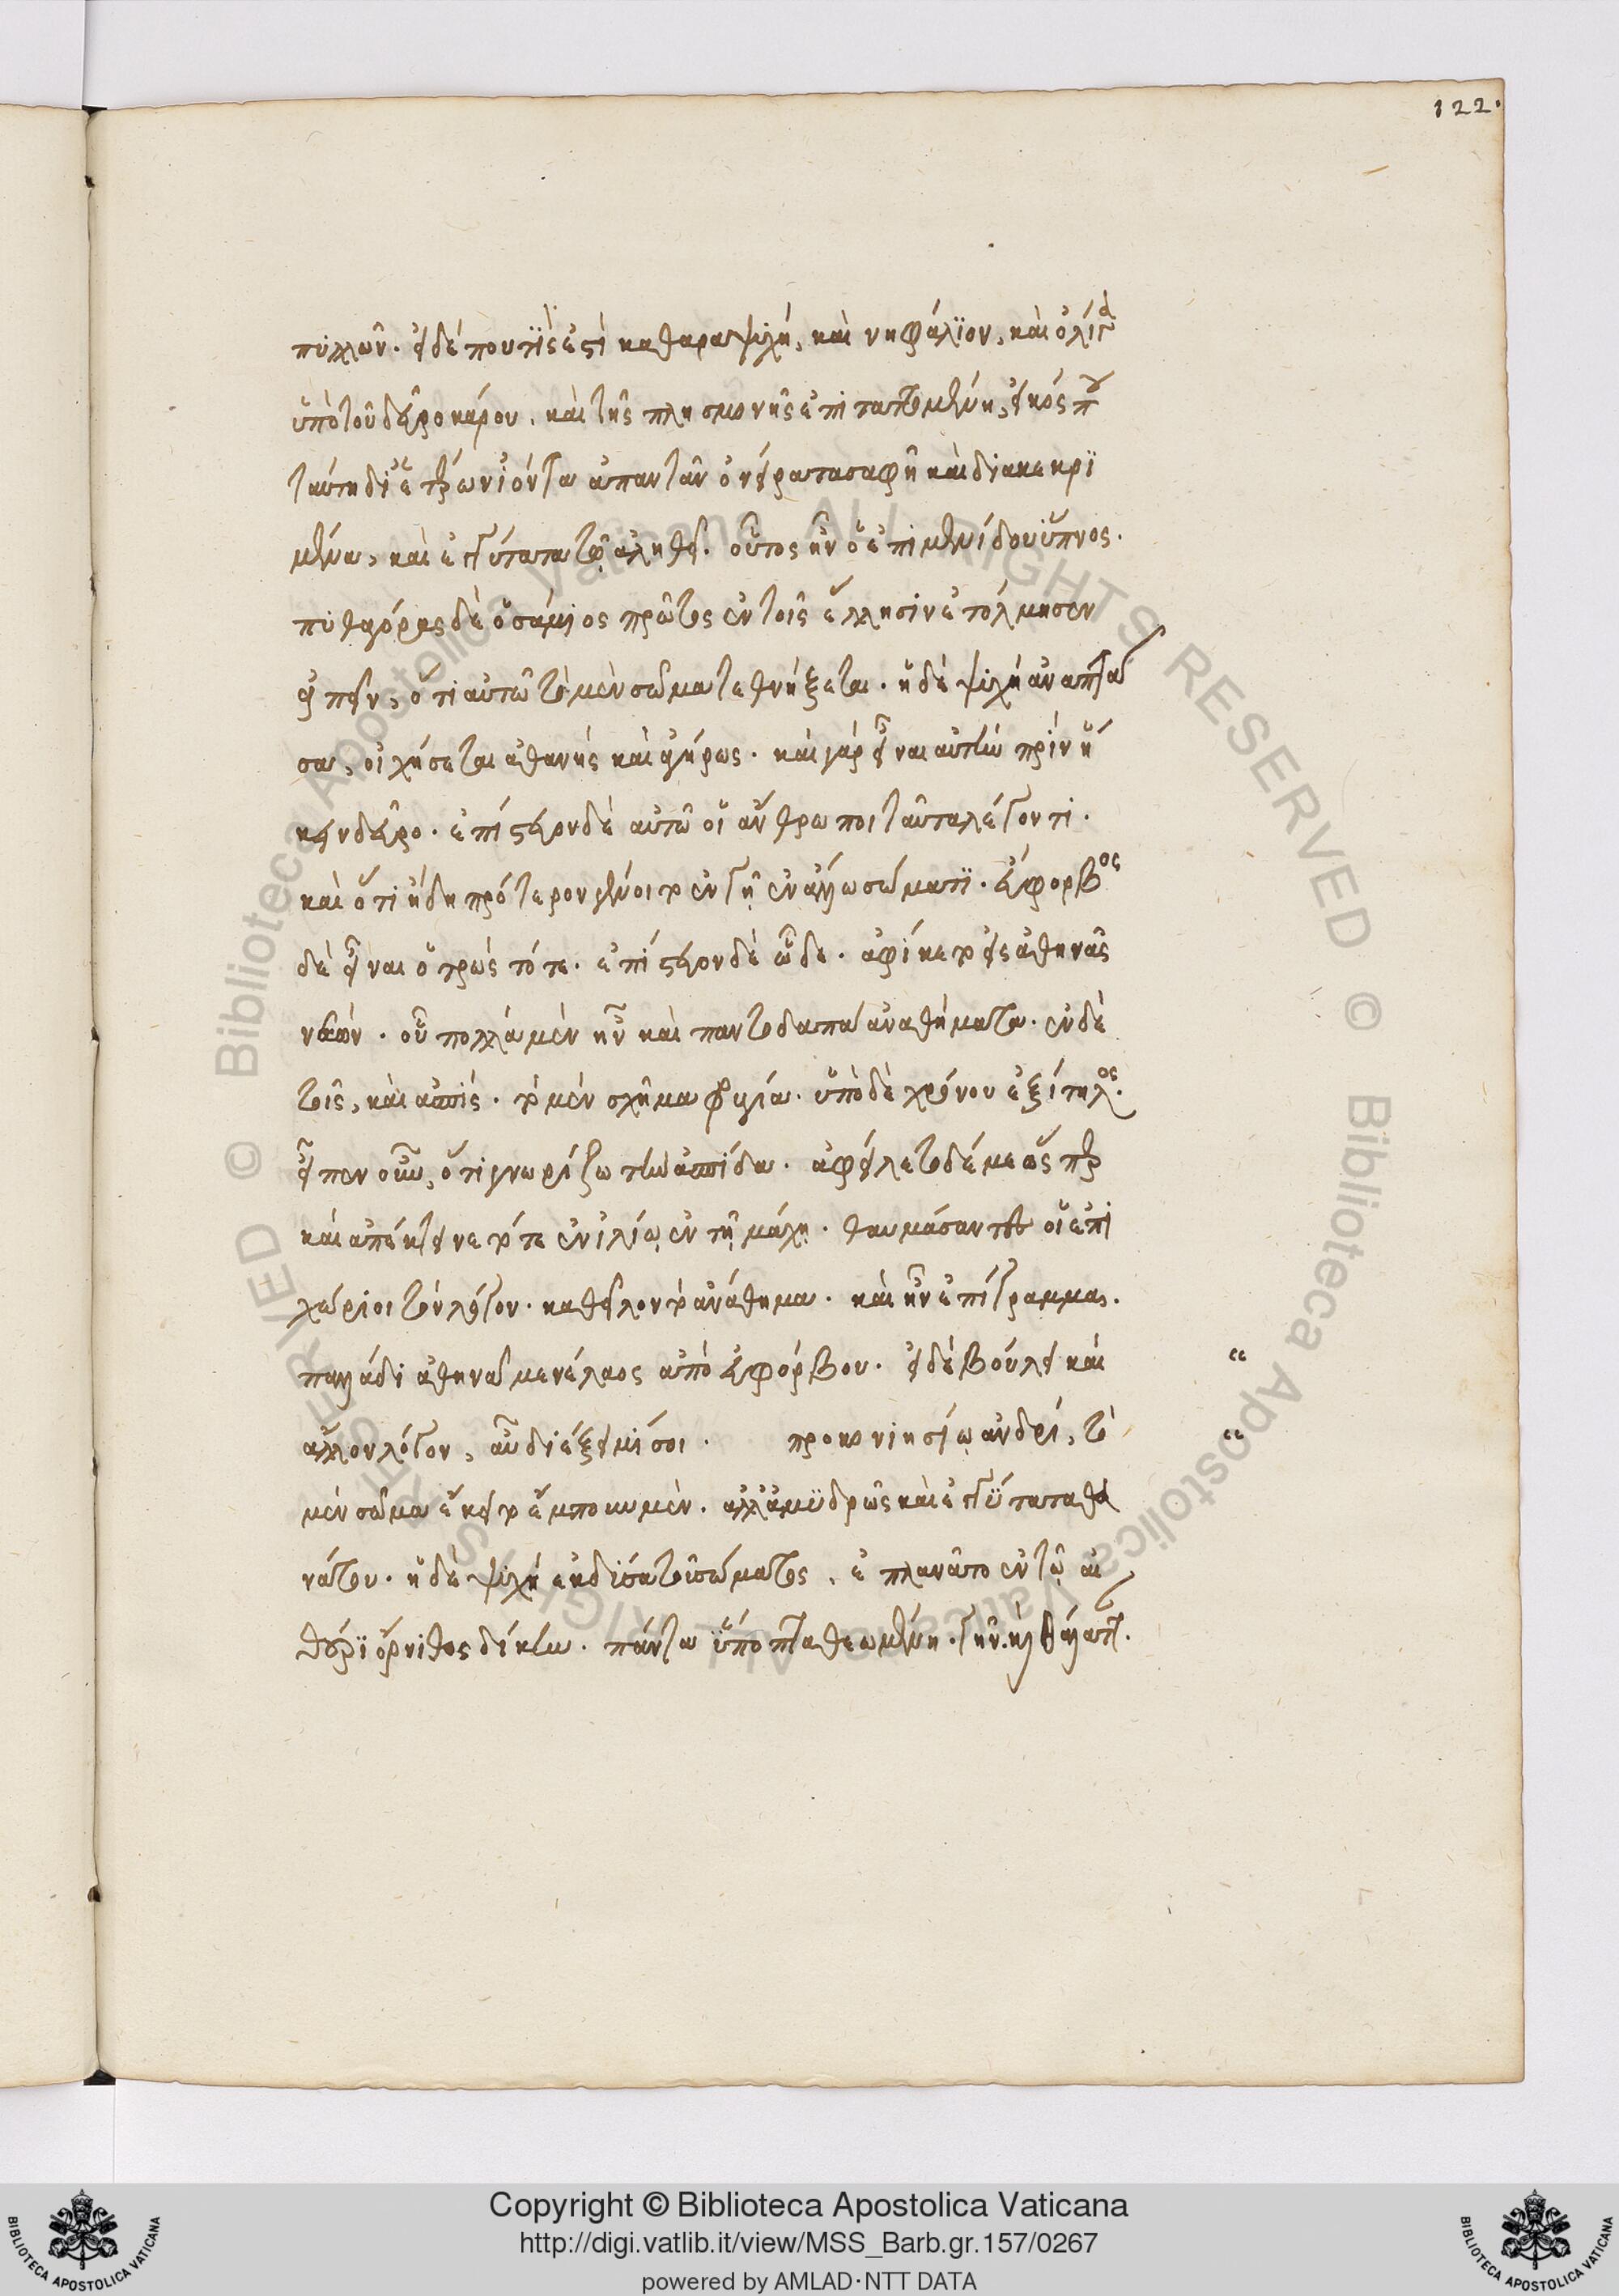 πυλλῶν. εἰ δέ που τὶς ἐστὶ καθαρα ψυχή, καὶ νηφάλϊον, καὶ ὀλίγα
ὑπὸ τοῦ δεῦρο κάρου, καὶ τῆς πλησμονῆς ἐπι ταττομένη, εἰκός που
ταύτη δι' ἑτέρων ἰόντα ἀπαντᾶν ὀνείρατα σαφῆ καὶ διακεκρϊ
μένα, καὶ ἐγγύτατα τῷ ἀληθεῖ. οὗτος ἦν ὁ ἐπιμενίδου ὕπνος.
πυθαγόρας δὲ ὁ σάμιος πρῶτος ἐν τοῖς ἕλλησιν ἐτόλμησεν
εἰπεῖν, ὅτι αὐτῶ τὸ μὲν σῶμα τεθνήξεται. ἡ δὲ ψυχὴ ἀναπτᾶ
σα, οἰχήσεται ἀθανὴς καὶ ἀγήρως. καὶ γὰρ εἶναι αὐτὴν πρὶν ἥ
κειν δεῦρο. ἐπίστευον δὲ αὐτῶ οἱ ἄνθρωποι ταῦτα λέγοντι.
καὶ ὅτι ἤδη πρότερον γένοιτο ἐν γῇ ἐν ἄλλω σώματϊ. εὔφορβος
δὲ εἶναι ὁ τρὼς τότε. ἐπίστευον δὲ ὧδε. ἀφίκετο εἰς ἀθηνᾶς
ναὼν. οὗ πολλὰ μὲν ἦν καὶ παντοδαπὰ ἀναθήματα. ἐν δὲ
τοῖς, καὶ ἀσπίς. τὸ μὲν σχῆμα φρυγία. ὑπὸ δὲ χρόνου ἐξίτηλος.
εἶπεν οὖν, ὅτι γνωρίζω τὴν ἀσπίδα. ἀφείλετο δέ με ὅσπερ
καὶ ἀπέκτεινε τότε ἐν ἰλίῳ ἐν τῇ μάχῃ. θαυμάσαντες οἱ ἐπι
χώριοι τὸν λόγον. καθεῖλον τὸ ἀνάθημα. καὶ ἦν ἐπίγραμμα.
παλλάδι ἀθηνᾶ μενέλαος ἀπὸ εὐφόρβου. εἰ δὲ βούλει καὶ
ἄλλον λόγον, αὖ διέξειμί σοι. προκονικησίῳ ἀνδρί, τὸ
μὲν σῶμα ἔκειτο ἔμπονυμὲν. ἀλλ' ἀμϋδρῶς καὶ ἐγγϋτατα θα
νάτου. ἡ δὲ ψυχὴ ἐκδῦσα τοῦ σώματος, ἐπλανᾶτο ἐν τῷ αἰ
θέρϊ ὄρνιθος δίκην. πάντα ὕποπτα θεωμένη. γῆν. καὶ θάλαττ.
122.